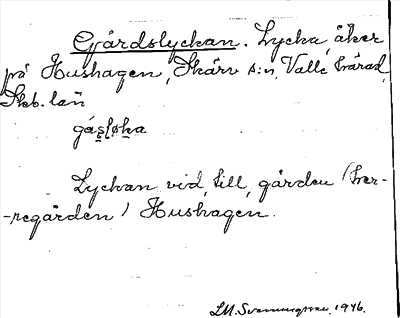 Gjärdslyckan. Lycka, åker
på Hushagen, Skärv s:n, Valle härad,
Skb. län
gá̱sl̥øka
Lyckan vid, till, gården (Her-
-regården) Hushagen.
LM. Svenungsson. 1946.